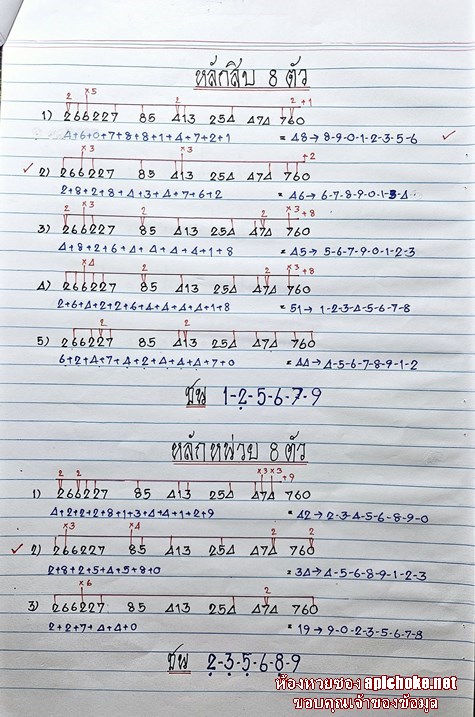 หลักสิบ 8 ตัว
2 ×5 2 2 +1
1) 266227 85 413 254 474 760
4+6+0+7+8+8+1+4+7+2+1 = 48→ 8-9-0-1-2-3-5-6
×3 ×3 +2
2) 266227 85 413 254 474 760
2+8+2+8+4+3+4+7+6+2 = 46→ 6-7-8-9-0-1-3-4
2 ×3 2 2 ×3 +8
3) 266227 85 413 254 474 760
4+8+2+6+4+4+4+4+1+8 = 45→ 5-6-7-9-0-1-2-3
×4 2 2 ×3 +8
4) 266227 85 413 254 474 760
2+6+4+2+2+6+4+4+4+4+1+8 = 51→ 1-2-3-4-5-6-7-8
2 2
5) 266227 85 413 254 474 760
6+2+4+7+4+2+4+4+4+7+0 = 44→ 4-5-6-7-8-9-1-2
ชน 1-2-5-6-7-9
หลักหน่วย 8 ตัว
2 2 ×3 ×3 +9
1) 266227 85 413 254 474 760
4+2+2+2+8+1+3+4+4+1+2+9 = 42→ 2-3-4-5-6-8-9-0
×3 ×4 2 2
2) 266227 85 413 254 474 760
2+8+2+5+4+5+8+0 = 34→ 4-5-6-8-9-1-2-3
×6 2
3) 266227 85 413 254 474 760
2+2+7+4+4+0 = 19→ 9-0-2-3-5-6-7-8
ชน 2-3-5-6-8-9
ห้องหวยซอง aplchoke.net
ขอบคุณเจ้าของข้อมูล